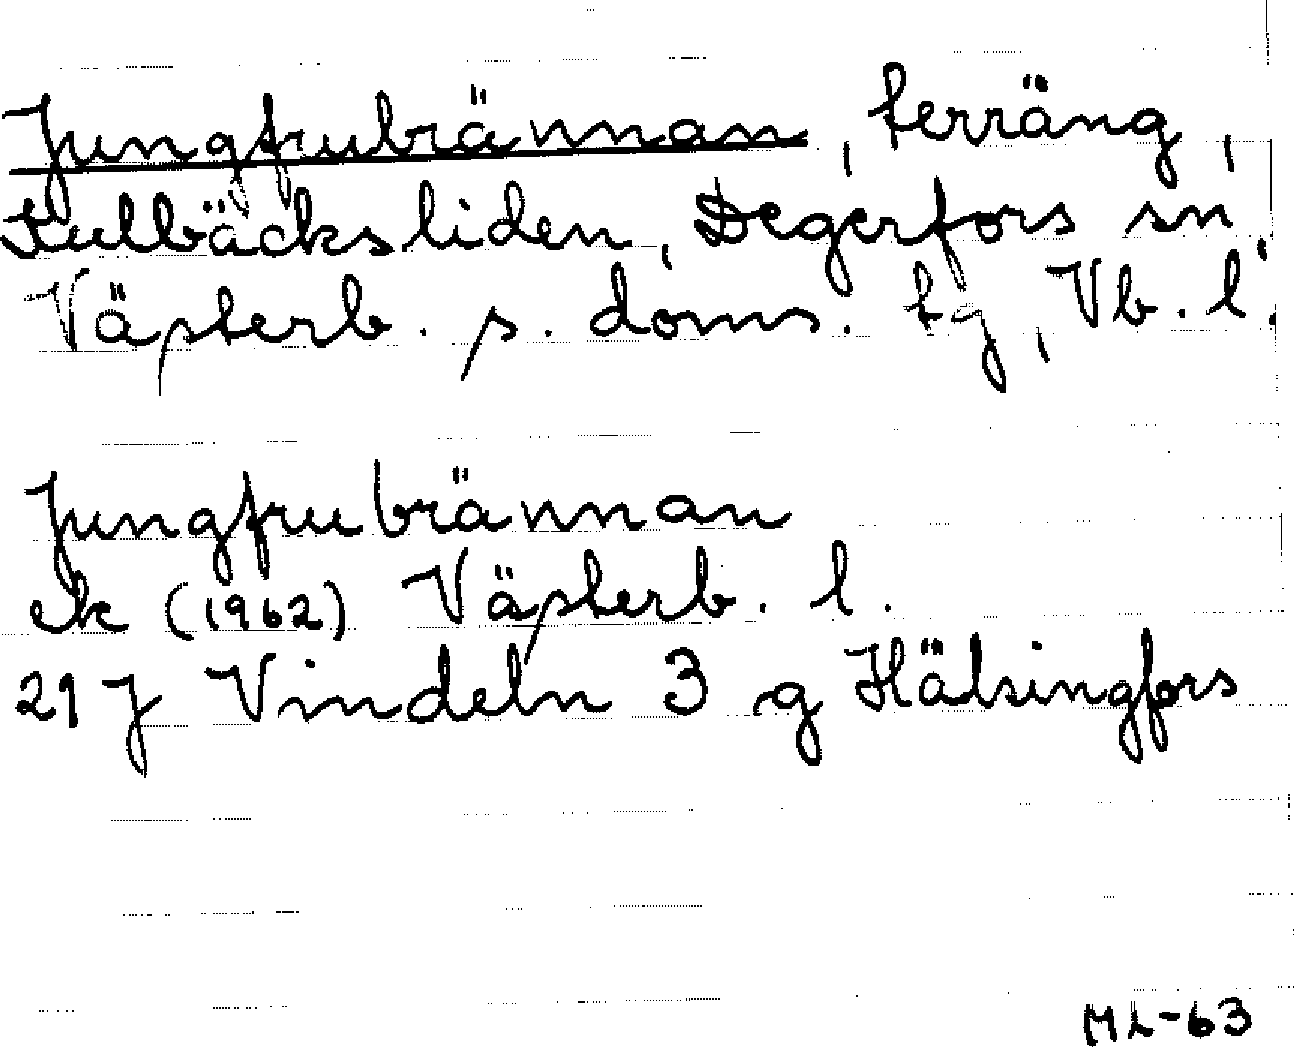 Jungfrubrännan, terräng,
Kulbäcksliden, Degerfors sn,
Västerb. s. doms. tg, Vb. l.
Jungfrubrännan
ek (1962) Västerb. l.
21 J Vindeln 3 g Hälsingfors
ML-63